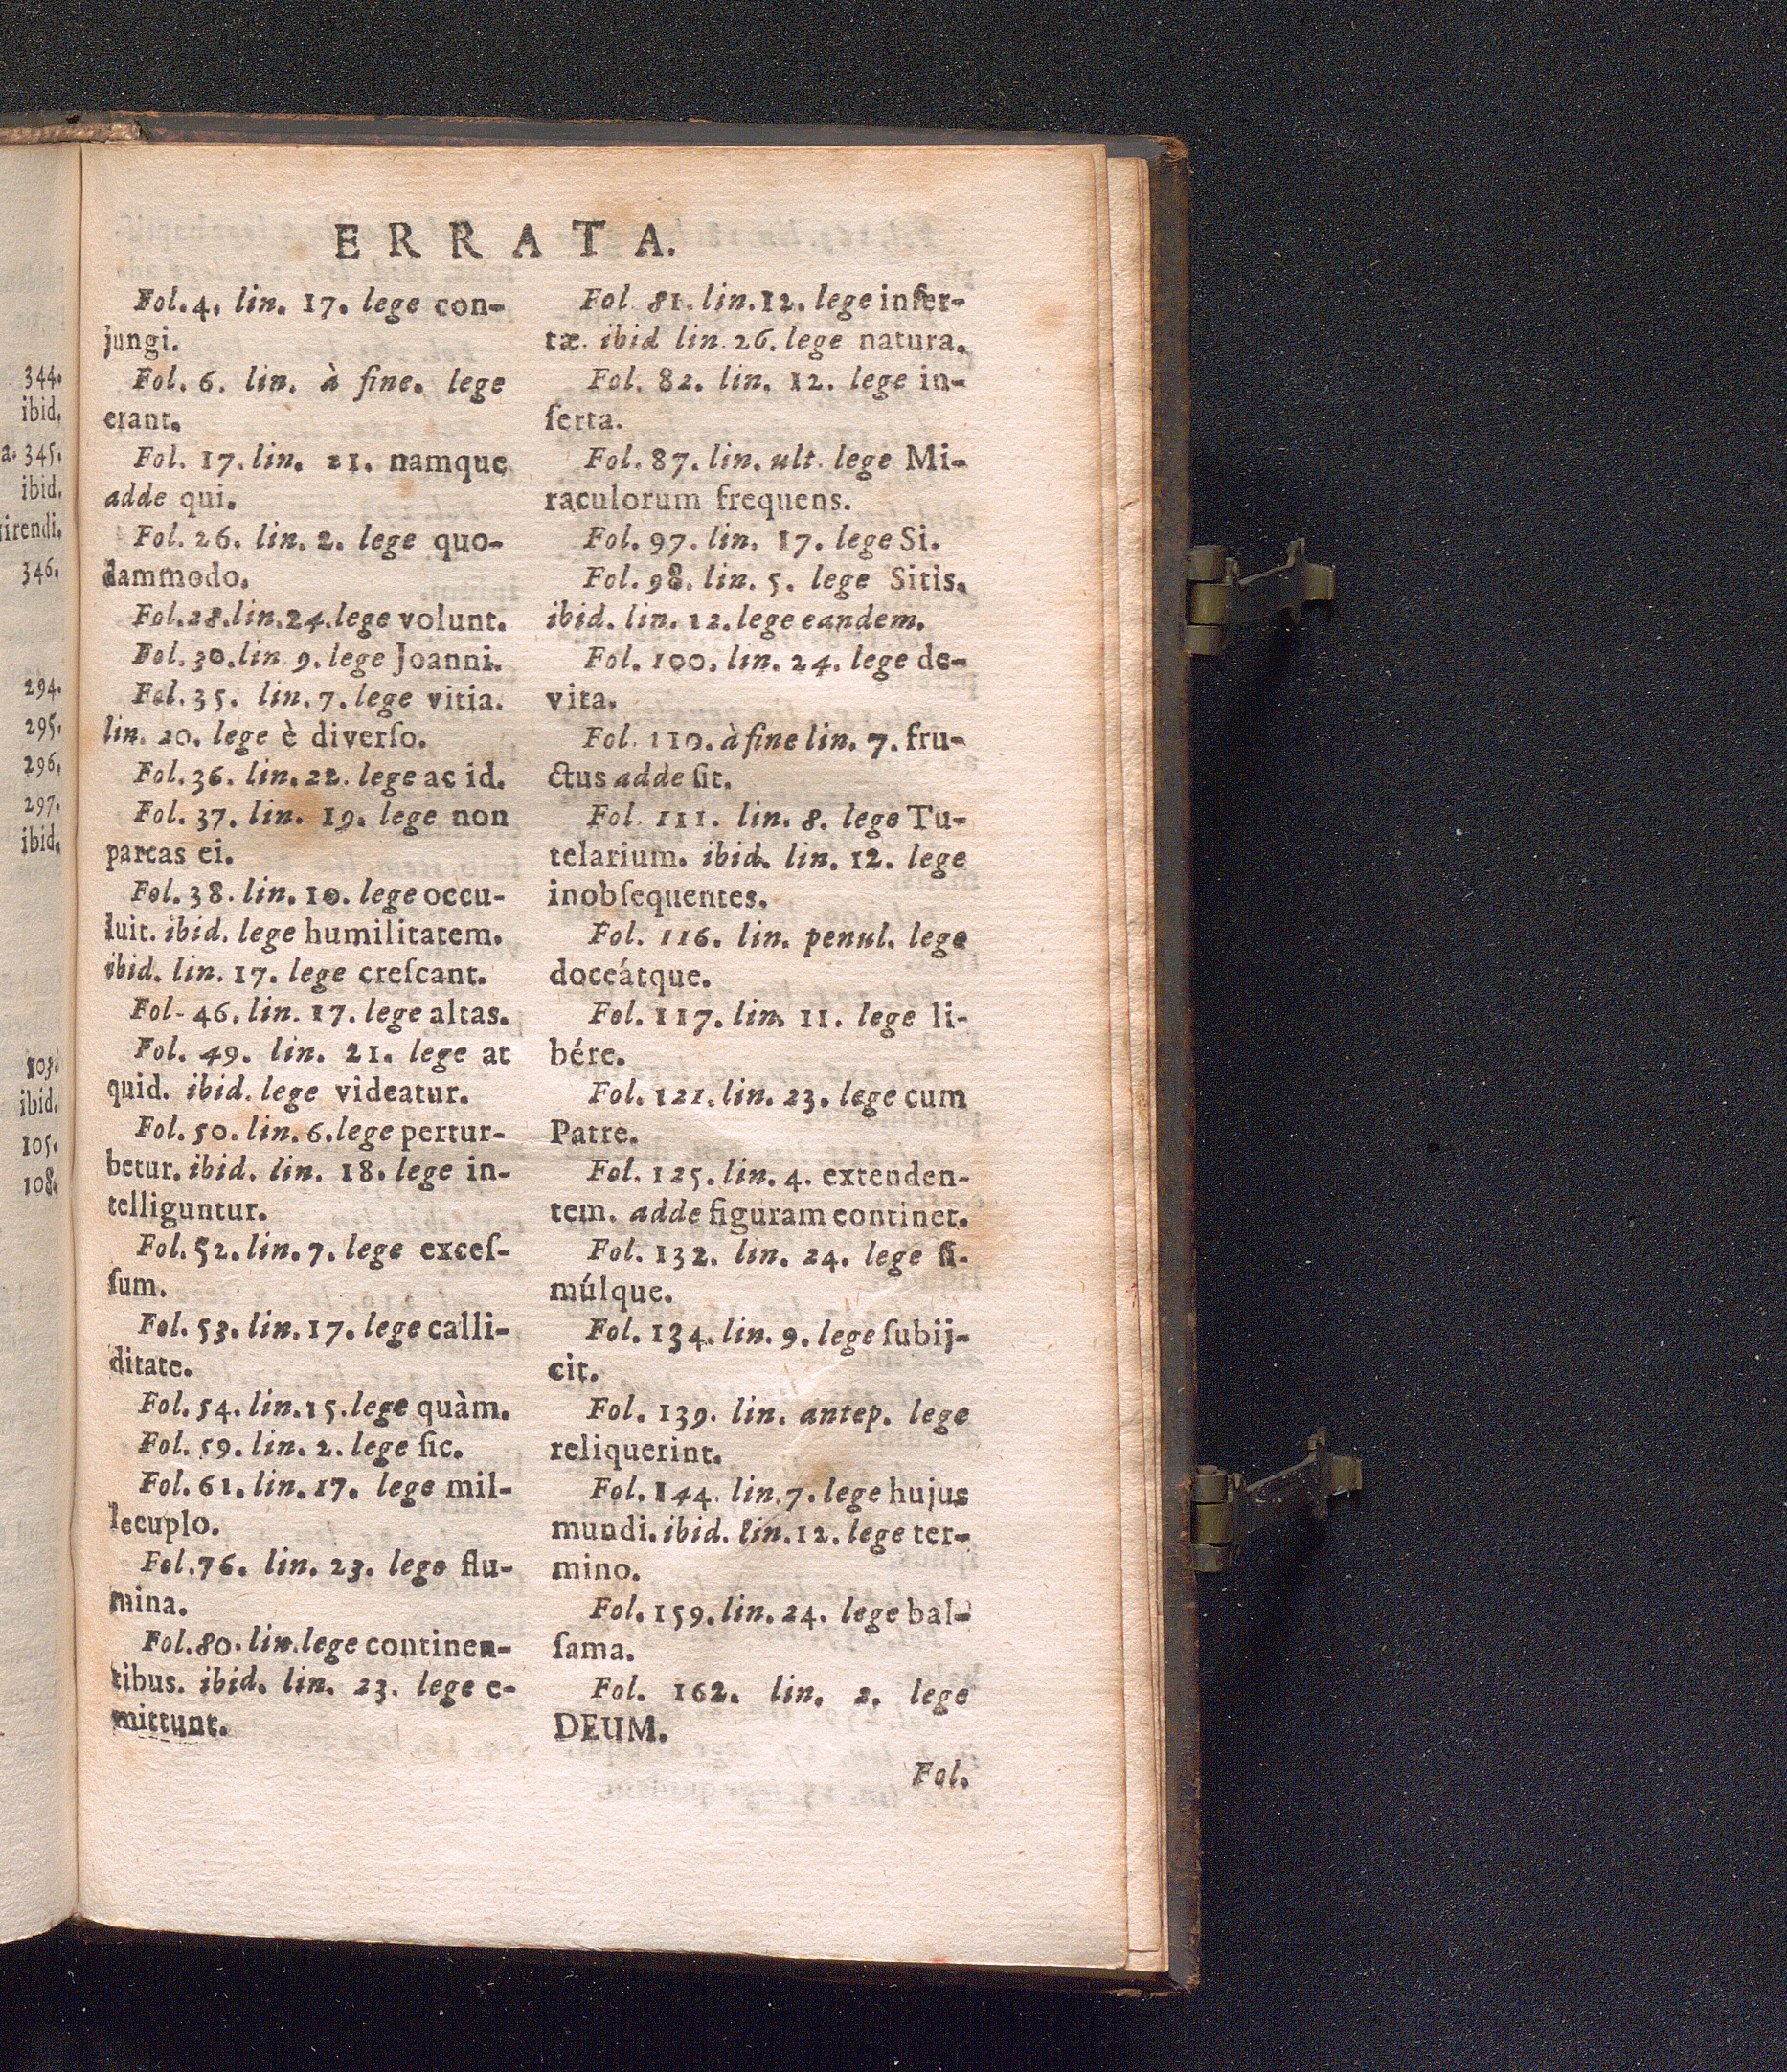 344.
ibid.
a. 345.
ibid.
irendi.
346.
294.
295.
296.
297.
ibid.
103.
ibid.
105.
108.
ERRATA.
Fol. 4. lin. 17. lege con-
jungi.
Fol. 6. lin. à fine. lege
erant.
Fol. 17. lin. 21. namque
adde qui.
Fol. 26. lin. 2. lege quo-
dammodo.
Fol. 28. lin. 24. lege volunt.
Fol. 30. lin 9. lege Joanni.
Fol. 35. lin. 7. lege vitia.
lin. 20. lege è diverſo.
Fol. 36. lin. 22. lege ac id.
Fol. 37. lin. 19. lege non
parcas ei.
Fol. 38. lin. 10. lege occu-
luit. ibid. lege humilitatem.
ibid. lin. 17. lege creſcant.
Fol- 46. lin. 17. lege altas.
Fol. 49. lin. 21. lege at
quid. ibid. lege videatur.
Fol. 50. lin. 6. lege pertur-
betur. ibid. lin. 18. lege in-
telliguntur.
Fol. 52. lin. 7. lege exceſ-
ſum.
Fol. 53. lin. 17. lege calli-
ditate.
Fol. 54. lin. 15. lege quàm.
Fol. 59. lin. 2. lege ſic.
Fol. 61. lin. 17. lege mil-
lecuplo.
Fol. 76. lin. 23. lege flu-
mina.
Fol. 80. lin. lege continen-
tibus. ibid. lin. 23. lege e-
mittunt.
Fol. 81. lin. 12. lege inſer-
tæ. ibid lin. 26. lege natura.
Fol. 82. lin. 12. lege in-
ſerta.
Fol. 87. lin. ult. lege Mi-
raculorum frequens.
Fol. 97. lin. 17. lege Si.
Fol. 98. lin. 5. lege Sitis.
ibid. lin. 12. lege eandem.
Fol. 100. lin. 24. lege de-
vita.
Fol. 110. à fine lin. 7. fru-
ctus adde ſit.
Fol. 111. lin. 8. lege Tu-
telarium. ibid. lin. 12. lege
inobſequentes.
Fol. 116. lin. penul. lege
doceátque.
Fol. 117. lin. 11. lege li-
bére.
Fol. 121. lin. 23. lege cum
Patre.
Fol. 125. lin. 4. extenden-
tem. adde figuram continet.
Fol. 132. lin. 24. lege ſi-
múlque.
Fol. 134. lin. 9. lege ſubij-
cit.
Fol. 139. lin. antep. lege
reliquerint.
Fol. 144. lin. 7. lege hujus
mundi. ibid. lin. 12. lege ter-
mino.
Fol. 159. lin. 24. lege bal-
ſama.
Fol. 162. lin. 2. lege
DEUM.
Fol.